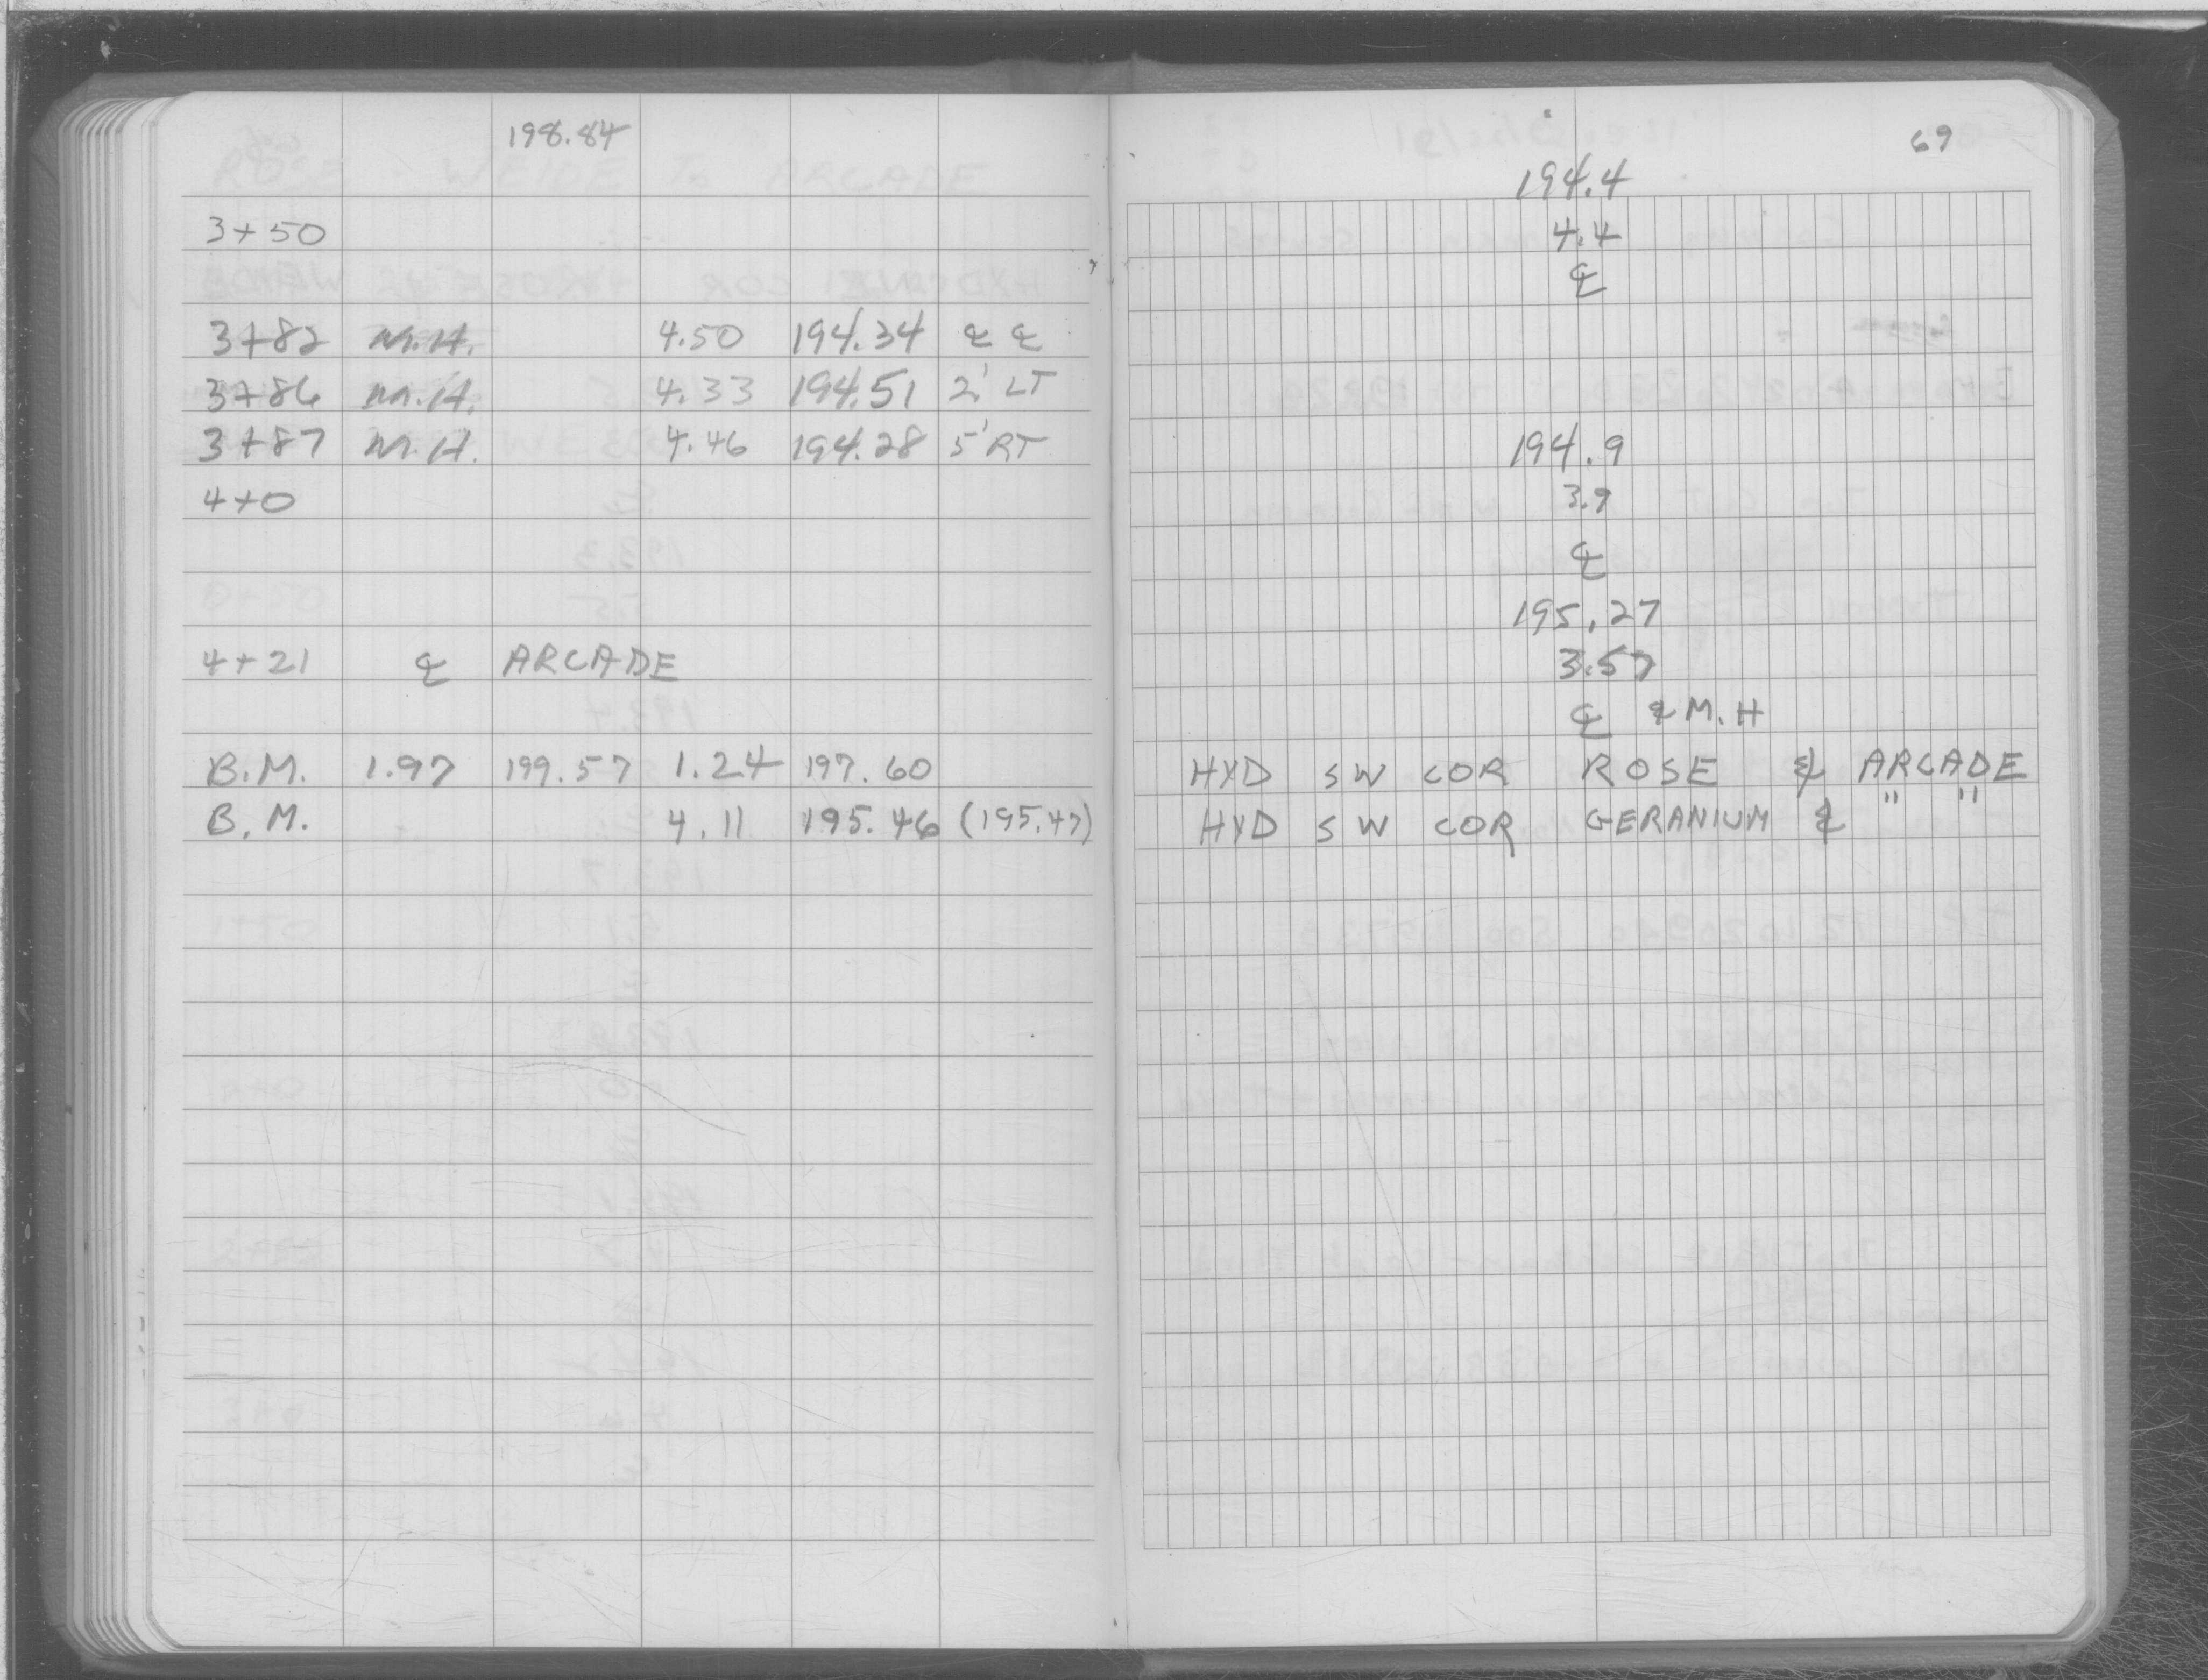 198.84
3+50
3+82 M.H. 4.50 194.34 ℄ ℄
3+86 M.H. 4.33 194.51 2' LT
3+87 M.H. 4.46 194.28 5' RT
4+0
4+21 ℄ ARCADE
B.M. 1.97 199.57 1.24 197.60
B.M. 4.11 195.46 (195.47)
69
194.4
4.4
℄
194.9
3.9
℄
195.27
3.57
℄ & M.H
HYD SW COR ROSE & ARCADE
HYD SW COR GERANIUM & " "